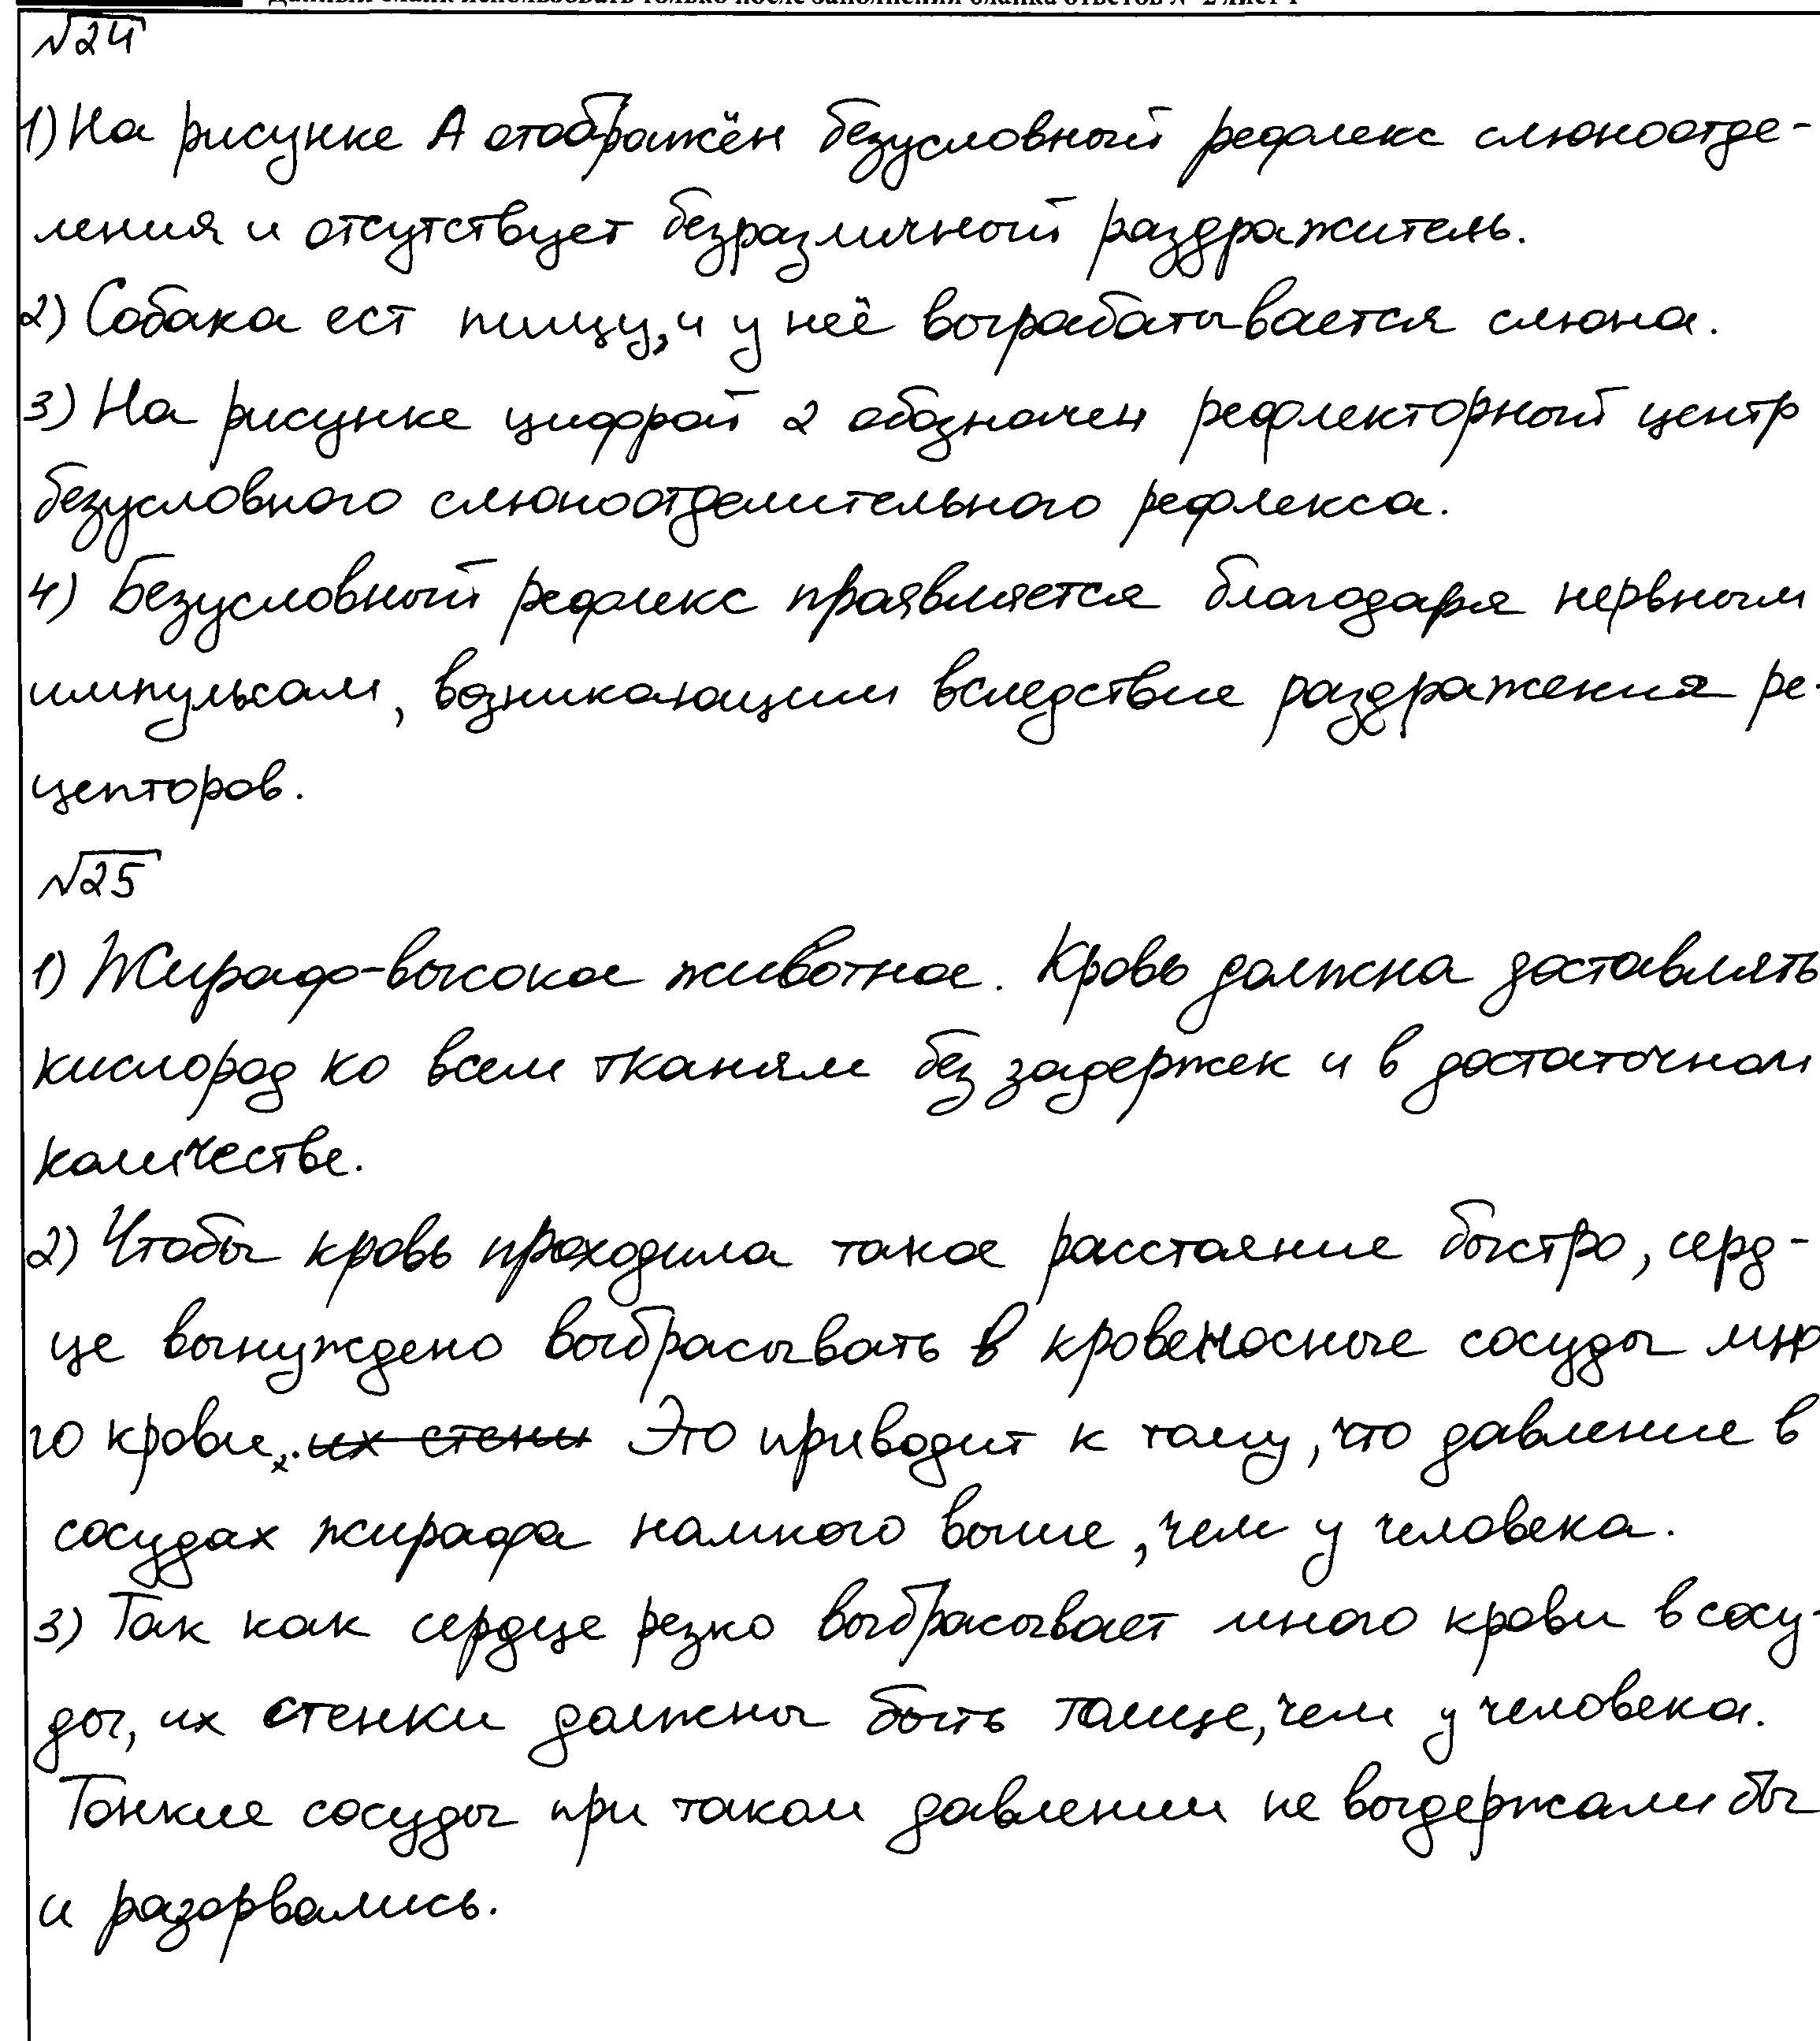 №24
1) На рисунке А отображён безусловный рефлекс слюноотде-
ления и отсутствует безразличный раздражитель.
2) Собака ест пищу, и у неё вырабатывается слюна.
3) На рисунке цифрой 2 обозначен рефлекторный центр
безусловного слюноотделительного рефлекса.
4) Безусловный рефлекс проявляется благодаря нервным
импульсам, возникающим вследствие раздражения ре-
цепторов.
№25
1) Жираф-высокое животное. Кровь должна доставлять
кислород ко всем тканям без задержек и в достаточном
количестве.
2) Чтобы кровь проходила такое расстояние быстро, серд-
це вынуждено выбрасывать в кровеносные сосуды мно
го крови. их стени Это приводит к тому, что давление в
сосудах жирафа намного выше, чем у человека.
3) Так как сердце резко выбрасывает много крови в сосу-
ды, их стенки должны быть толще, чем у человека.
Тонкие сосуды при таком давлении не выдержали бы
и разорвались.